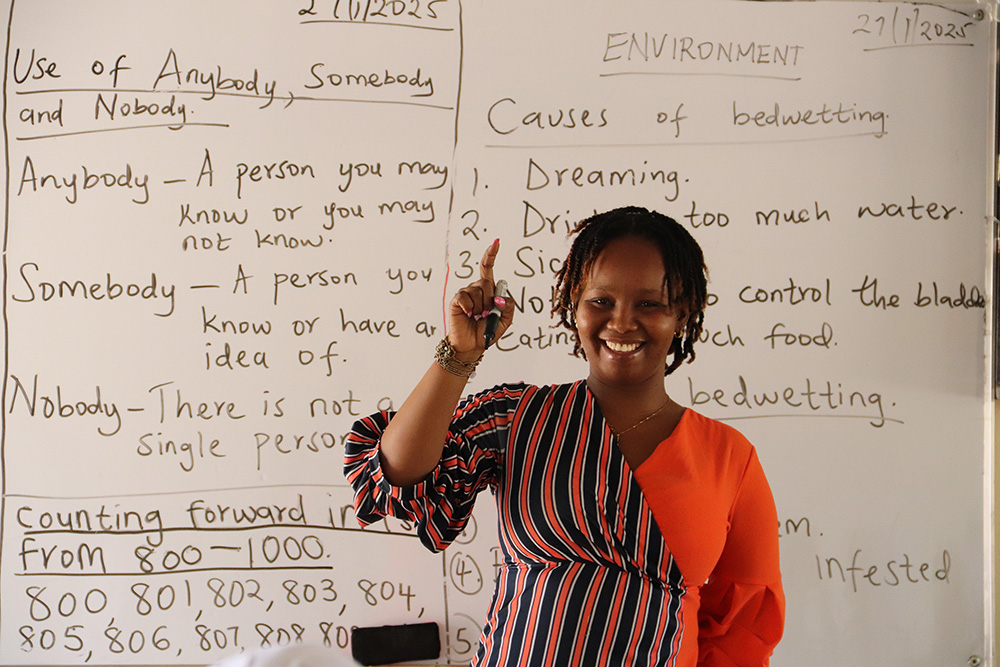 27/1/2025
Use of Anybody, Somebody
and Nobody.
Anybody – A person you may
know or you may
not know.
Somebody – A person you
know or have an
idea of.
Nobody – There is not a
single person
Counting forward in 1s
from 800 – 1000.
800, 801, 802, 803, 804,
805, 806, 807, 808, 80
27/1/2025
ENVIRONMENT
Causes of bedwetting.
1. Dreaming.
2. Dri too much water.
3. Sic
No to control the bladde
eating uch food.
bedwetting.
em.
(4) infested
5